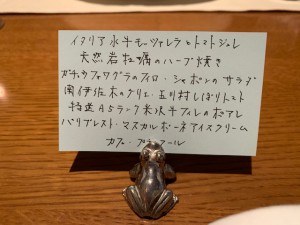 イタリア水牛モッツァレラとトマトジュレ
天然岩牡蠣のハーブ焼き
ガチョウフォワグラのフィロ・シャポンのサラダ
南伊佐木のグリエ・五川村しぼりトマト
特選A5ランク米沢牛フィレのポアレ
パリブレスト・マスカルポーネアイスクリーム
カフェ・プティフール